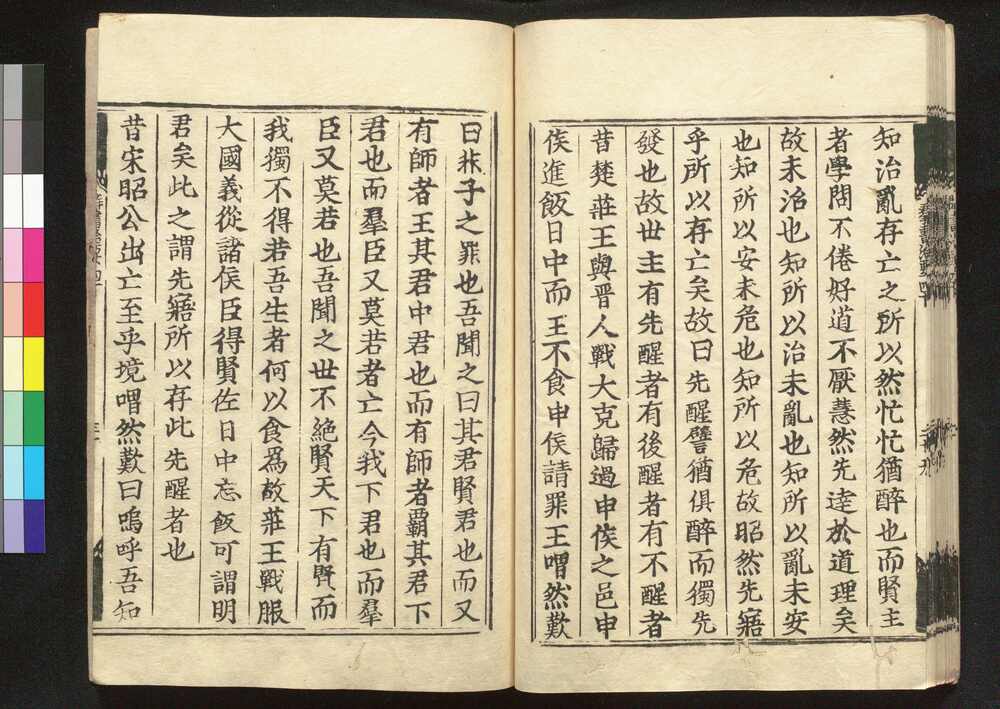 知治亂存亡之所以然忙忙猶醉也而賢主
者學問不倦好道不厭慧然先達於道理矣
故未治也知所以治未亂也知所以亂未安
也知所以安未危也知所以危故昭然先寤
乎所以存亡矣故曰先醒譬猶俱醉而獨先
發也故世主有先醒者有後醒者有不醒者
昔楚莊王與晉人戰大克歸過申侯之邑申
侯進飯日中而王不食申侯請罪王喟然歎
曰非子之罪也吾聞之曰其君賢君也而又
有師者王其君中君也而有師者覇其君下
君也而羣臣又莫若者亡今我下君也而羣
臣又莫若也吾聞之世不絶賢天下有賢而
我獨不得若吾生者何以食爲故莊王戰服
大國義從諸侯臣得賢佐日中忘飯可謂明
君矣此之謂先寤所以存此先醒者也
昔宋昭公出亡至乎境喟然歎曰嗚呼吾知